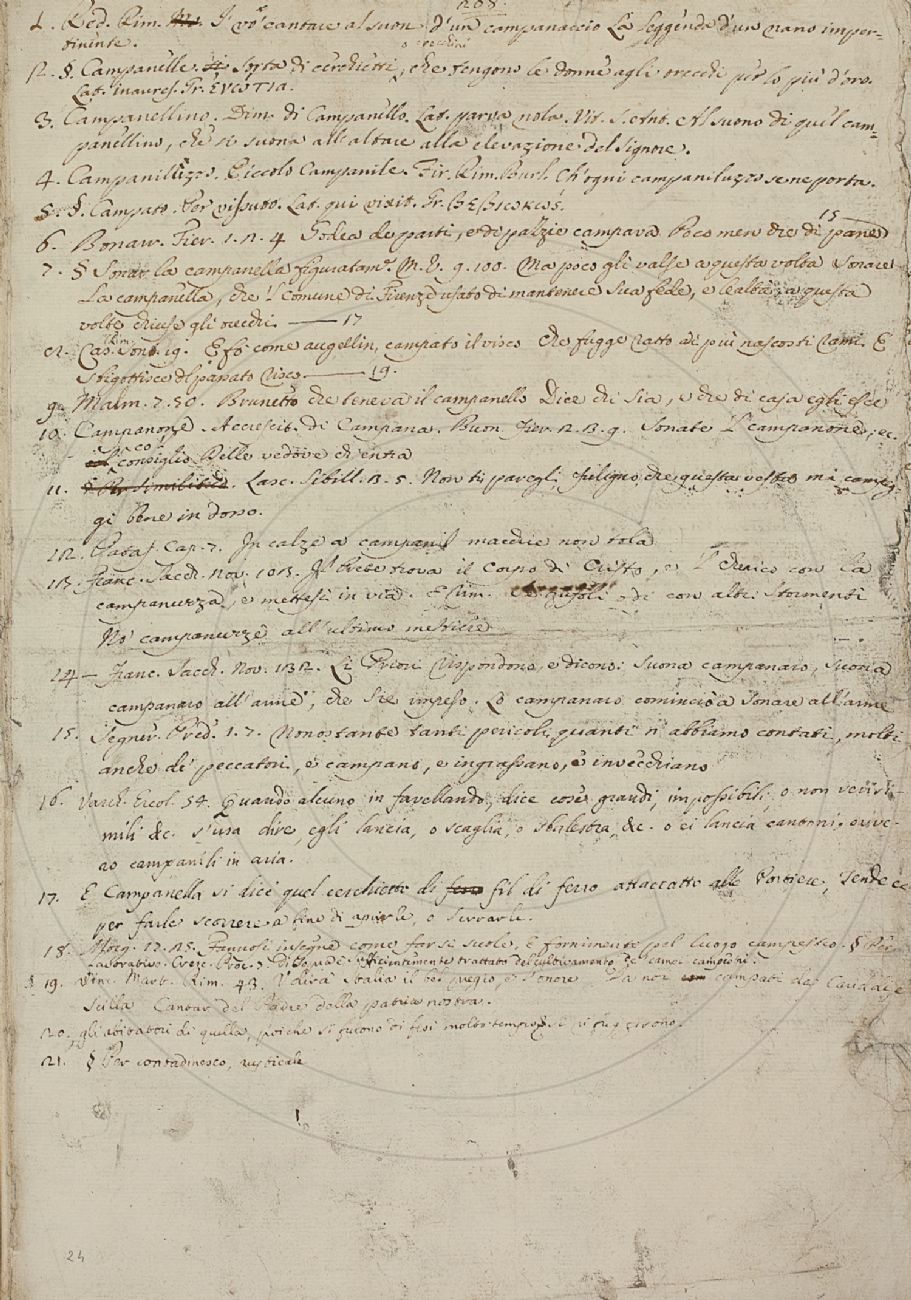 208.
1. Red. Rim. I' vo' cantare al suon d'un campanaccio La leggenda d'un nano imper-
tinente.
o orecchini
2. §. Campanelle. Sorta di cerchietti, che tengono le donne agli orecchi per lo più d'oro.
Lat. inaures. Gr. ἐνώτια.
3. Campanellino. Dim. di Campanello. Lat. parva nola. Vit. S. Ant. e Al suono di quel cam-
panellino, che si suona all'altare alla elevazione del Signore.
4. Campaniluzzo. Piccolo Campanile. Fir. Rim. Burl. Ch'ogni campaniluzzo se ne porta.
5. §. Campato. Per vissuto. Lat. qui vixit. Gr.
6. Buonar. Fier. 1. 2. 4 Godea de parti, e di pazzie campava Poco men che di pane
15
7. § Sonar la campanella figuratam.e M. V. 9. 100. Ma poco gli valse a questa volta sonare
La campanella, che 'l Comune di Firenze usato di mantenere sua fede, e lealtà, a questa
volta chiuse gli orecchi. 17
8. Cas. Rim. Son. 19. E fo come augellin, campato il visco Che fugge ratto ai più nascosti rami. E
Sbigottisce del passato risco. 19.
9. Malm. 7. 50. Brunetto che teneva il campanello Dice chi sia, e che di casa egli esce
10. Campanone. Accrescit. di Campana. Buon. Fier. 2. 3. 9. Sonate 'l campanone, ec.
consiglio Delle vedove ch'entra
11. Lasc. Sibill. 3. 5. Non ti pare egli, che questa vesta mi campeg-
gi bene in dosso.
12. Pataf. Cap. 7. In calze a campanil macchie non tola
13. Franc. Sacch. Nov. 103. Il Prete trova il Corpo di Cristo, e 'l cherico con la
campanuzza, e mettesi in via. E Rim. con altri stormenti
Nò campanuzze all'ultimo mestiere
14 – Franc. Sacch. Nov. 132. Li Priori rispondono, e dicono: Suona campanaio, suona
campanaio all'arme, che sie impeso. Lo campanaio cominciò a sonare all'arme
15. Segner. Pred. 1. 7. Nonostante tanti pericoli, quanti n'abbiamo contati, molti
anche de' peccatori, e campano, e ingrassano, e invecchiano
16. Varch. Ercol. 54. Quando alcuno in favellando, dice cose grandi, impossibili o non verisi-
mili &c. s'usa dire, egli lancia, o scaglia, o sbalestra, &c. o ei lancia cantoni, ovve-
ro campanili in aria.
17. E Campanella si dice quel cerchietto di fil di ferro attaccatto alle Portiere, Tende ec
per farle scorrere a fine di aprirle, o serrarle.
18. Morg. 17. 25. Fannosi insegne come far si suole, E fornimento pel luogo campestro. § Per
Lavorativo. Cresc. Proe. 3 Di sopra è sufficientemente trattato del cultivamento de' campi campestri.
§ 19. Vinc. Mart. Rim. 43. Italia il bel pregio, e l'onore Da noi campati da Cariddi, e
Scilla Cantar del Padre della patria nostra.
20. gli abitatori di quella, poiche si furono difesi molto tempo, si fuggirono.
21. § Per contadinesco, rusticale
24